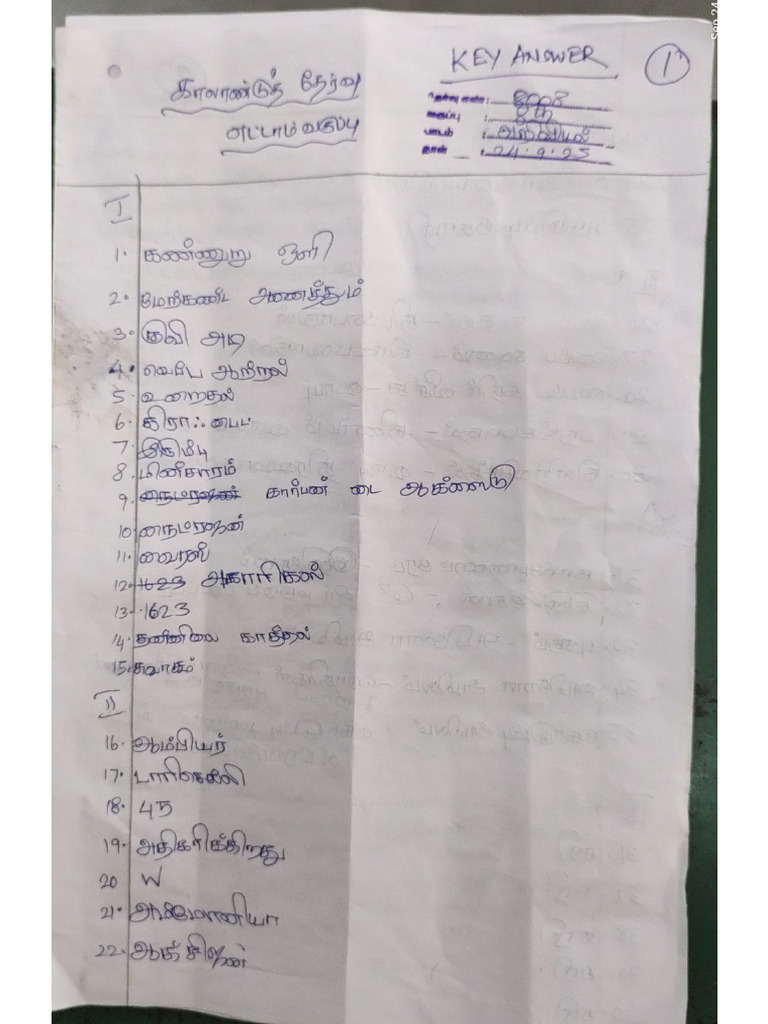 Sep 24
KEY ANSWER
1
காலாண்டுத் தேர்வு
எட்டாம் வகுப்பு
தேர்வு எண் : 8008
வகுப்பு : 8th
பாடம் : அறிவியல்
நாள் : 24.9.25
I
1. கண்ணுறு ஒளி
2. மேற்கண்ட அனைத்தும்
3. குவி ஆடி
4. வெப்ப ஆற்றல்
5. உறைதல்
6. கிராஃபைட்
7. இரும்பு
8. மின்சாரம்
9. நைட்ரஜன் கார்பன் டை ஆக்ஸைடு
10. நைட்ரஜன்
11. வைரஸ்
12. 1623 அகாரிகஸ்
13. 1623
14. தன்னிலை காத்தல்
15. சுவாசம்
II
16. ஆம்பியர்
17. டாரிசெல்லி
18. 45
19. அதிகரிக்கிறது
20 W
21. அம்மோனியா
22. ஆக்சிஜன்